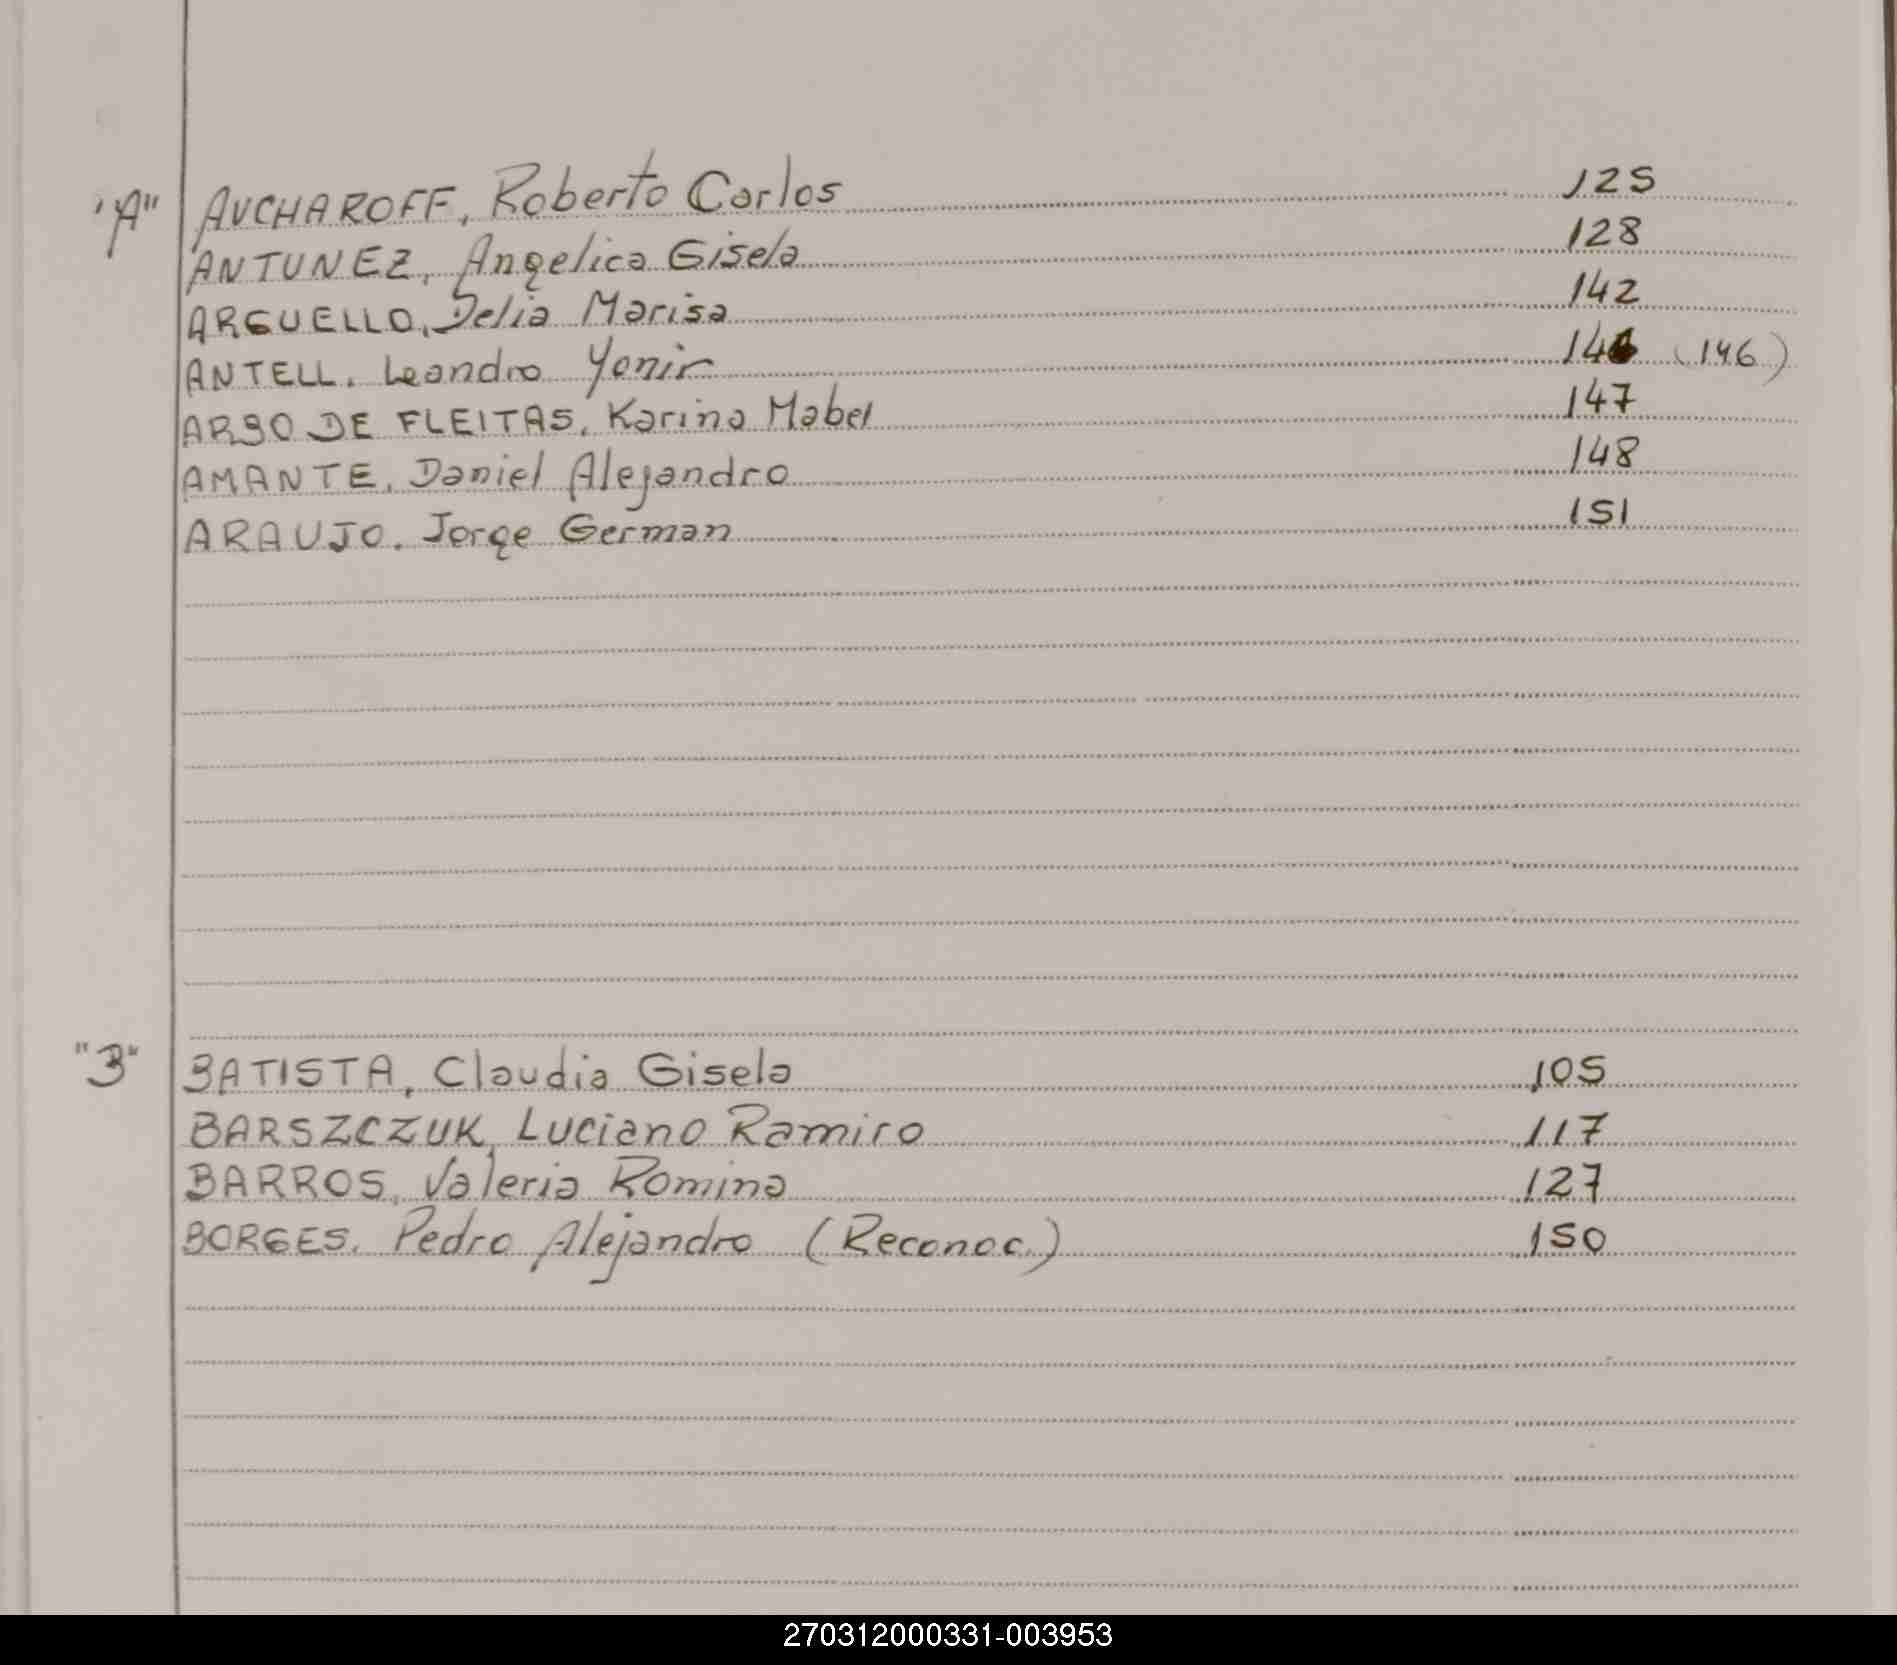 "A" AUCHAROFF, Roberto Carlos 125
ANTUNEZ, Angelica Gisela 128
ARGUELLO, Delia Marisa 142
ANTELL. Leandro Yonir 146 (146)
ARBO DE FLEITAS, Karina Mabel 147
AMANTE. Daniel Alejandro 148
ARAUJO. Jorge German 151
"B" BATISTA, Claudia Gisela 105
BARSZCZUK, Luciano Ramiro 117
BARROS, Valeria Romina 127
BORGES. Pedro Alejandro (Reconoc.) 150
270312000331-003953